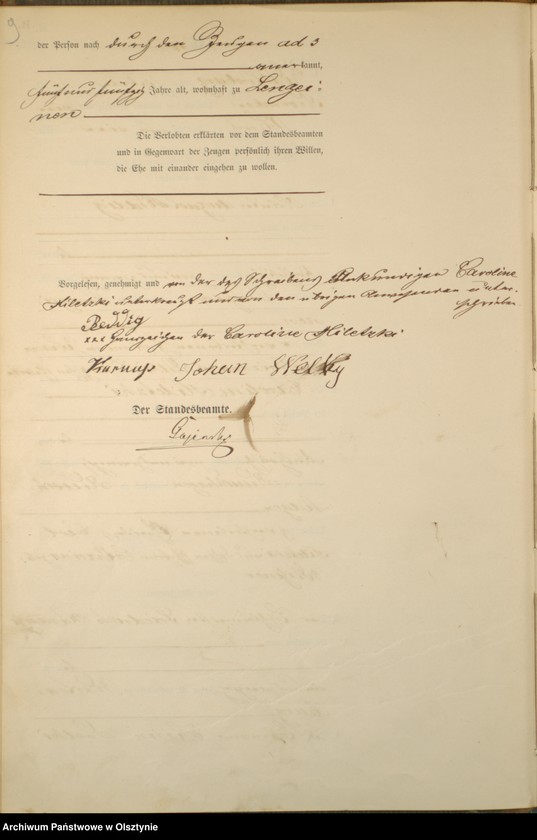 9
der Person nach durch den Zeugen ad 3
anerkannt,
fünfundfünfzig Jahre alt, wohnhaft zu Lengai-
nen
Die Verlobten erklärten vor dem Standesbeamten
und in Gegenwart der Zeugen persönlich ihren Willen,
die Ehe mit einander eingehen zu wollen.
Vorgelesen, genehmigt und von der des Schreibens unkundigen Caroline
unterkreuzt und von den übrigen Anwesenden unter-
schrieben
xxx Handzeichen der Caroline
Johann
Der Standesbeamte.
Archiwum Państwowe w Olsztynie